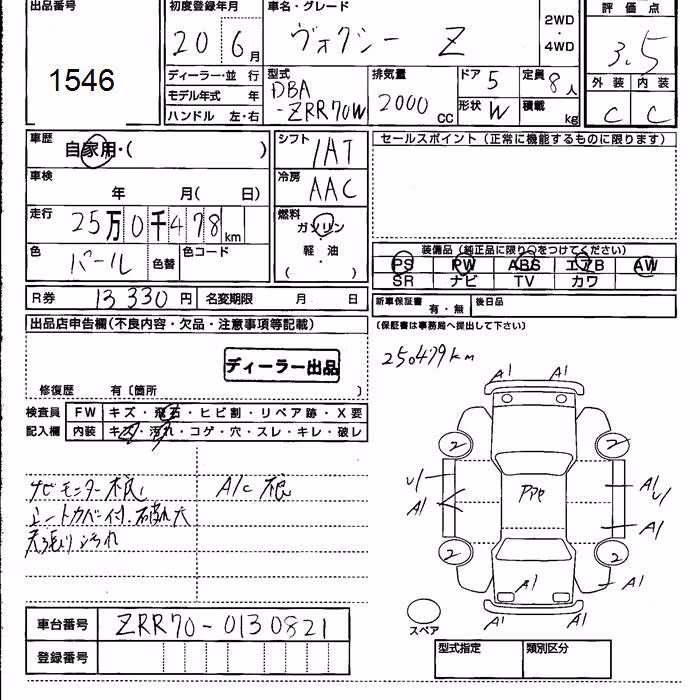 出品番号
1546
初度登録年月
20 6月
車名・グレード
ヴォクシー Z
2WD
・
4WD
評価点
3.5
外装 内装
C C
ディーラー・並行
モデル年式 年
ハンドル 左・右
型式
DBA
-ZRR70W
排気量
2000 CC
ドア 5
形状 W
定員 8人
積載 kg
車歴
自家用・( )
車検
年 月( 日)
走行
25万0千478km
色
パール
色替
色コード
シフト
IAT
冷房
AAC
燃料
ガソリン
・
軽・油
( )
R券 13330円 名変期限 月 日
セールスポイント(正常に機能するものに限ります)
装備品(純正品に限り○をつけてください)
PS PW ABS エアB AW
SR ナビ TV カワ
新車保証書 有・無 後日品
(保証書は事務局へ提出して下さい)
出品店申告欄(不良内容・欠品・注意事項等記載)
ディーラー出品
修復歴 有〔箇所 〕
検査員 FW キズ・飛石・ヒビ割・リペア跡・X要
記入欄 内装 キズ・汚れ・コゲ・穴・スレ・キレ・破レ
250479km
ナビモニター不良
A/C 不良
シートカバー付 破れ大
天張り汚れ
A1 A1
2 2
U1 A1
A1 U1
PPe
A1
2 2
A1 A1
A1 A1
スペア
車台番号 ZRR70-0130821
登録番号
型式指定 類別区分